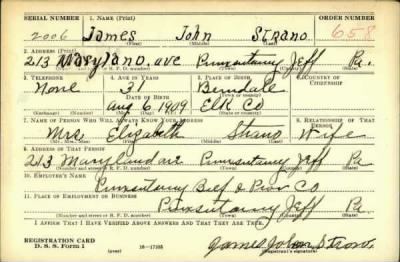 SERIAL NUMBER 1. NAME (Print) ORDER NUMBER
2006 James John Strano 658
(First) (Middle) (Last)
2. ADDRESS (Print)
213 Maryland. ave Punxsutawny Jeff Pa.
(Number and street or R. F. D. number) (Town) (County) (State)
3. TELEPHONE 4. AGE IN YEARS 5. PLACE OF BIRTH 6. COUNTRY OF CITIZENSHIP
None 31
DATE OF BIRTH (Town or county)
Aug 6 1909 Elk Co
7. NAME OF PERSON WHO WILL ALWAYS KNOW YOUR ADDRESS 8. RELATIONSHIP OF THAT PERSON
Mrs. Elizabeth Strano Wife
9. ADDRESS OF THAT PERSON
213 Maryland ave Punxsutawny Jeff Pa
(Number and street or R. F. D. number) (Town) (County) (State)
10. EMPLOYER'S NAME
Punxsutawny Beef & Prov Co
11. PLACE OF EMPLOYMENT OR BUSINESS
Punxsutawny Jeff Pa
(Number and street or R. F. D. number) (Town) (County) (State)
I AFFIRM THAT I HAVE VERIFIED ABOVE ANSWERS AND THAT THEY ARE TRUE.
REGISTRATION CARD
D. S. S. Form 1 (over) 16—17105 James John Strano
(Registrant's signature)